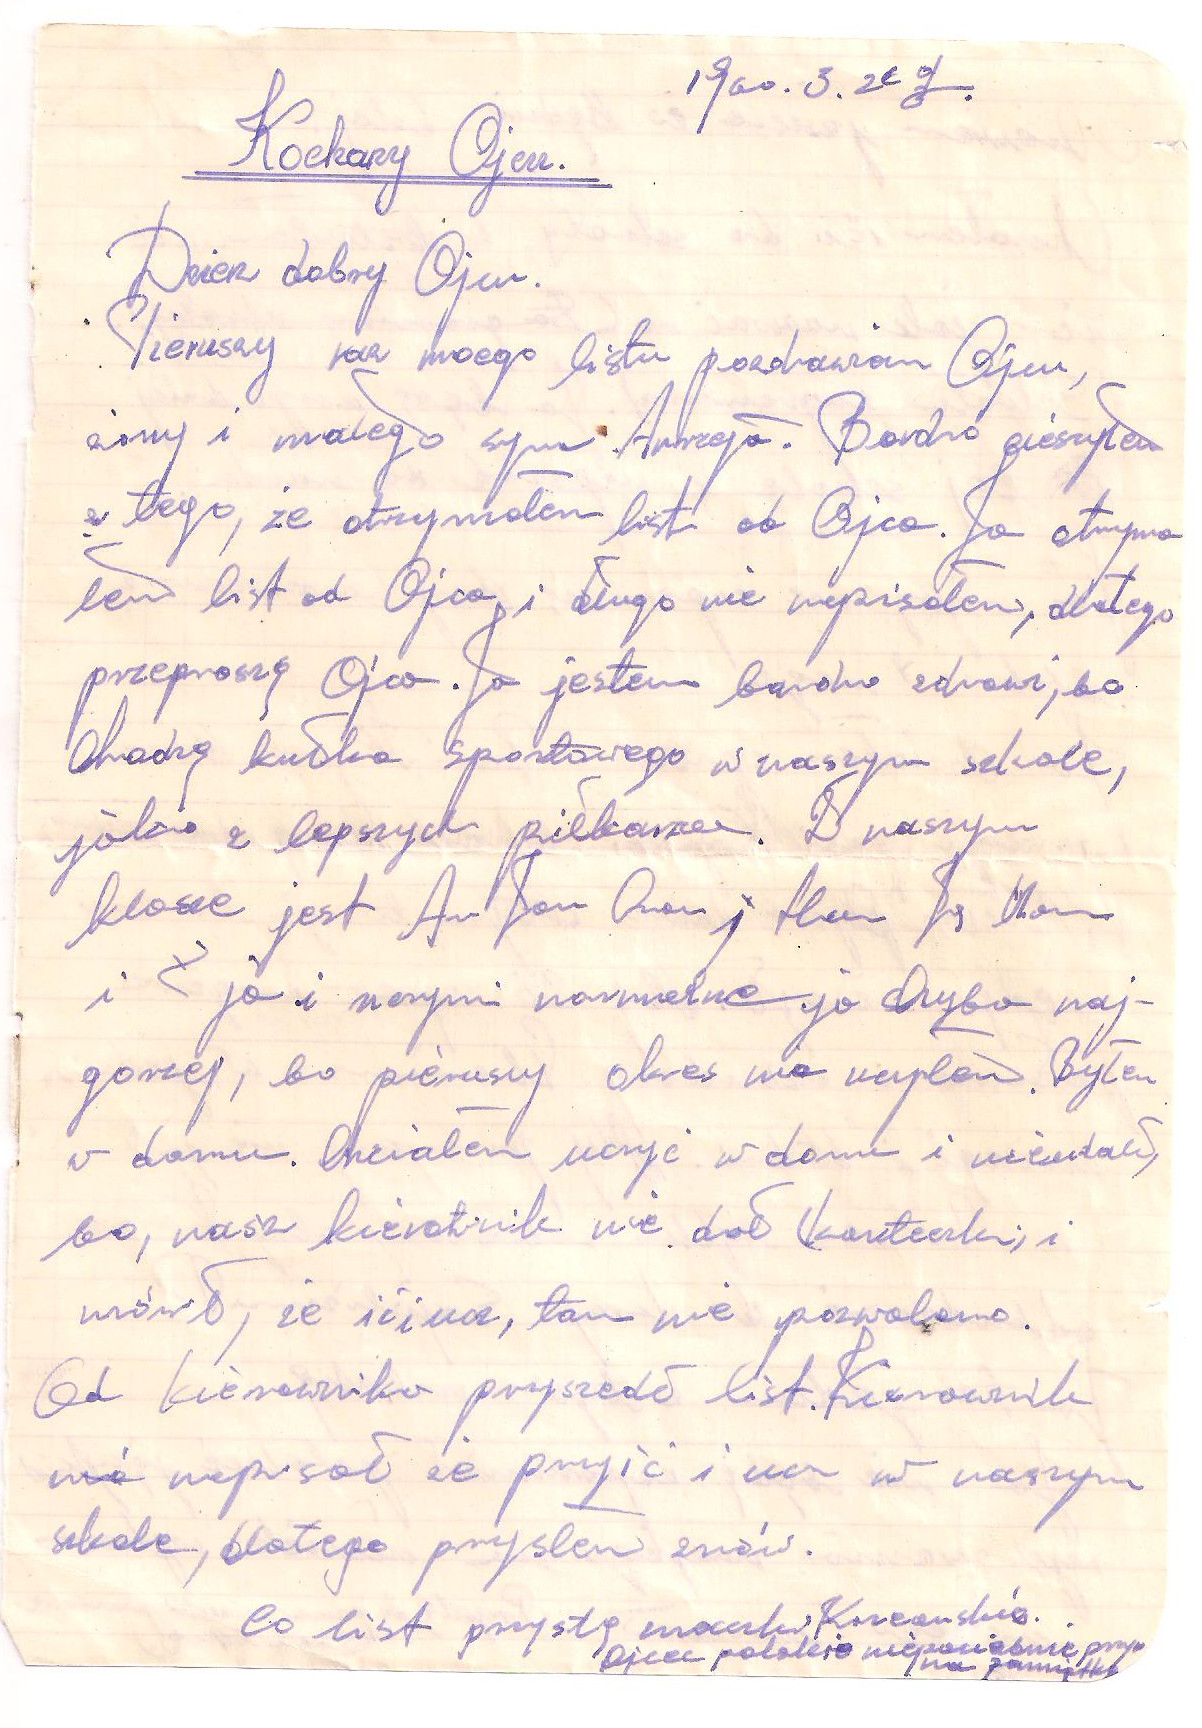 1960. 3. 2
Kochany Ojcu.
Dzień dobry Ojcu.
Pierwszy raz moego listu pozdrawiam Ojcu,
żony i małego syna Andrzeja. Bardzo cieszyłem
z tego, że otrzymałem list od Ojca. Ja otrzyma
łem list od Ojca, i długo nie napisałem, dlatego
przeproszę Ojca. Ja jestem bardzo zdrowi, bo
Chodzę kułka sportowego w naszym szkole,
jako z lepszych piłkarzem. W naszym
klasie jest An Jan
i ja i uczymi normalne ja Chyba naj-
gorzej, bo pierwszy okres nie uczyłem. Byłem
w domu. Chciałem uczyć w domu i nieudał,
bo, nasz kierownik nie dał karteczki, i
mówił, że tam nie pozwolono.
Od kierownika przyszedł list. Kierownik
napisał że przyjść i ucz w naszym
szkole, dlatego przyszłem znów.
Co list przystę znaczki Koreański.
Ojcec polskie przy
na pamiątkę